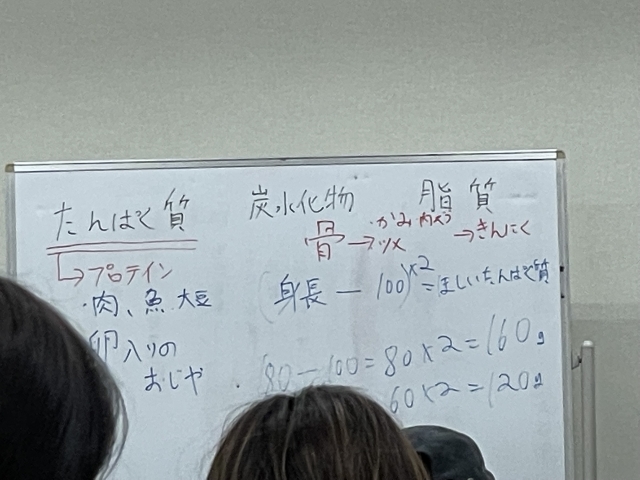 たんぱく質 炭水化物 脂質
→プロテイン
・肉、魚、大豆
卵入りの
おじや
骨→ツメ →きんにく
(身長-100)×2=ほしいたんぱく質
・180-100=80×2=160g
60×2=120g